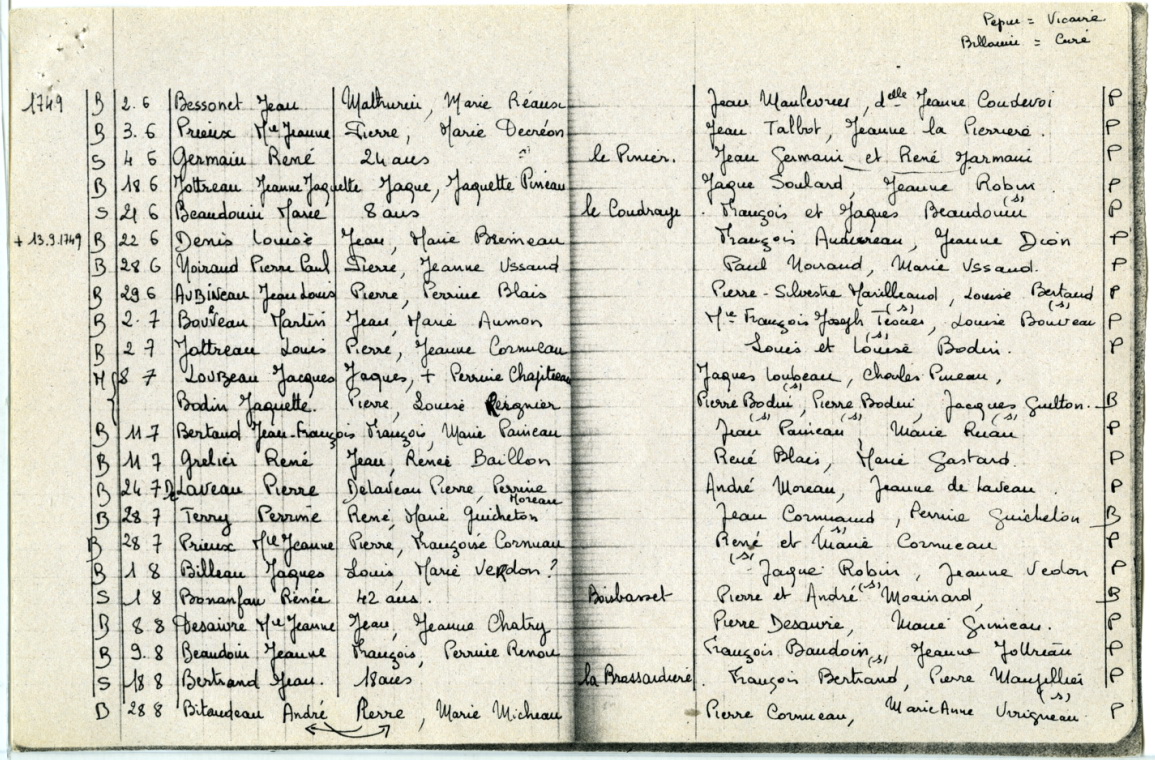 Pepin = Vicaire
= Curé
1749 B 2.6 Bessonet Jean Mathurin, Marie Réaux Jean Maulevrier, delle Jeanne Coudevoi P
B 3.6 Prieux Mie Jeanne Pierre, Marie Decréon Jean Talbot, Jeanne la Pierriere. P
S 4 6 Germain René 24 ans le Pinier. Jean Germain et René Jarmain P
B 18 6 Jottreau Jeanne Jaquette Jaque, Jaquette Pineau Jaque Soulard, Jeanne Robin. P
S 21 6 Beaudouin Marie 8 ans le Coudraye. François et Jaques Beaudouin (s) P
+ 13.9.1749 B 22 6 Denis Louise Jean, Marie Bremeau François Audureau, Jeanne Dion P
B 28 6 Noiraud Pierre Paul Pierre, Jeanne Ussaud Paul Noiraud, Marie Ussaud. P
B 29 6 AUBINeau Jean Louis Pierre, Perrine Blais Pierre-Silvestre Marilleaud, Louise Bertaud P
B 2.7 Bouveau Martin Jean, Marie Aumon Mre François Joseph (s), Louise Bouveau (s) P
B 2 7 Jottreau Louis Pierre, Jeanne Cornueau Louis et Louise (s) Bodin. P
M 8 7 LouBeau Jacques Jaques, + Perrine Chapiteau Jaques Loubeau, Charles Pineau,
Bodin Jaquette. Pierre, Louise Reignier Pierre Bodin (s), Pierre Bodin, Jacques Guilton. B
B 11 7 Bertaud Jean-François François, Marie Paineau Jean (s) Paineau (s), Marie Ruau (s) P
B 11 7 Grelier René Jean, Renée Baillon René Blais, Marie Gastard. P
B 24 7 De Laveau Pierre Delaveau Pierre, Perrine Moreau André Moreau, Jeanne de Laveau. P
B 28 7 Terry Perrine René, Marie Guicheton Jean Cornuaud, Perrine Guicheton B
B 28 7 Prieux Mie Jeanne Pierre, Françoise Cornuau René et Marie (s) Cornueau P
B 1 8 Billeau Jaques Louis, Marie VeRdon? (s) Jaque Robin, Jeanne Vedon P
S 1 8 Bonanfan Rénée 42 ans. Boisbasset Pierre et André (s) Moainard, B
B 8 8 Desaivre Mie Jeanne Jean, Jeanne Chatry Pierre Desaivre, Marie Grimeau. P
B 9.8 Beaudoin Jeanne François, Perrine Renou François Baudoin, Jeanne Jottreau P
S 18 8 Bertrand Jean. 18 ans la Brassardiere. François Bertrand (s), Pierre P
B 28 8 Bitaudeau André Pierre, Marie Micheau Pierre Cornueau, Marie Anne Vrigneau (s). P